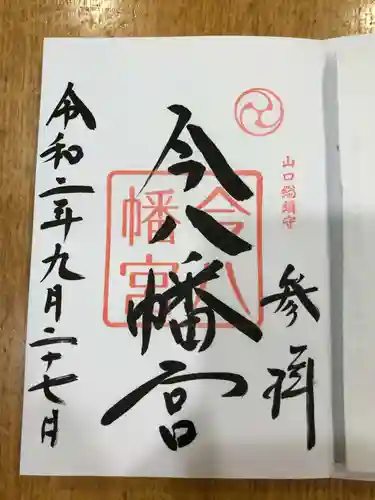 山口総鎮守
参拝
今八幡宮
今八幡宮
令和二年九月二十七日